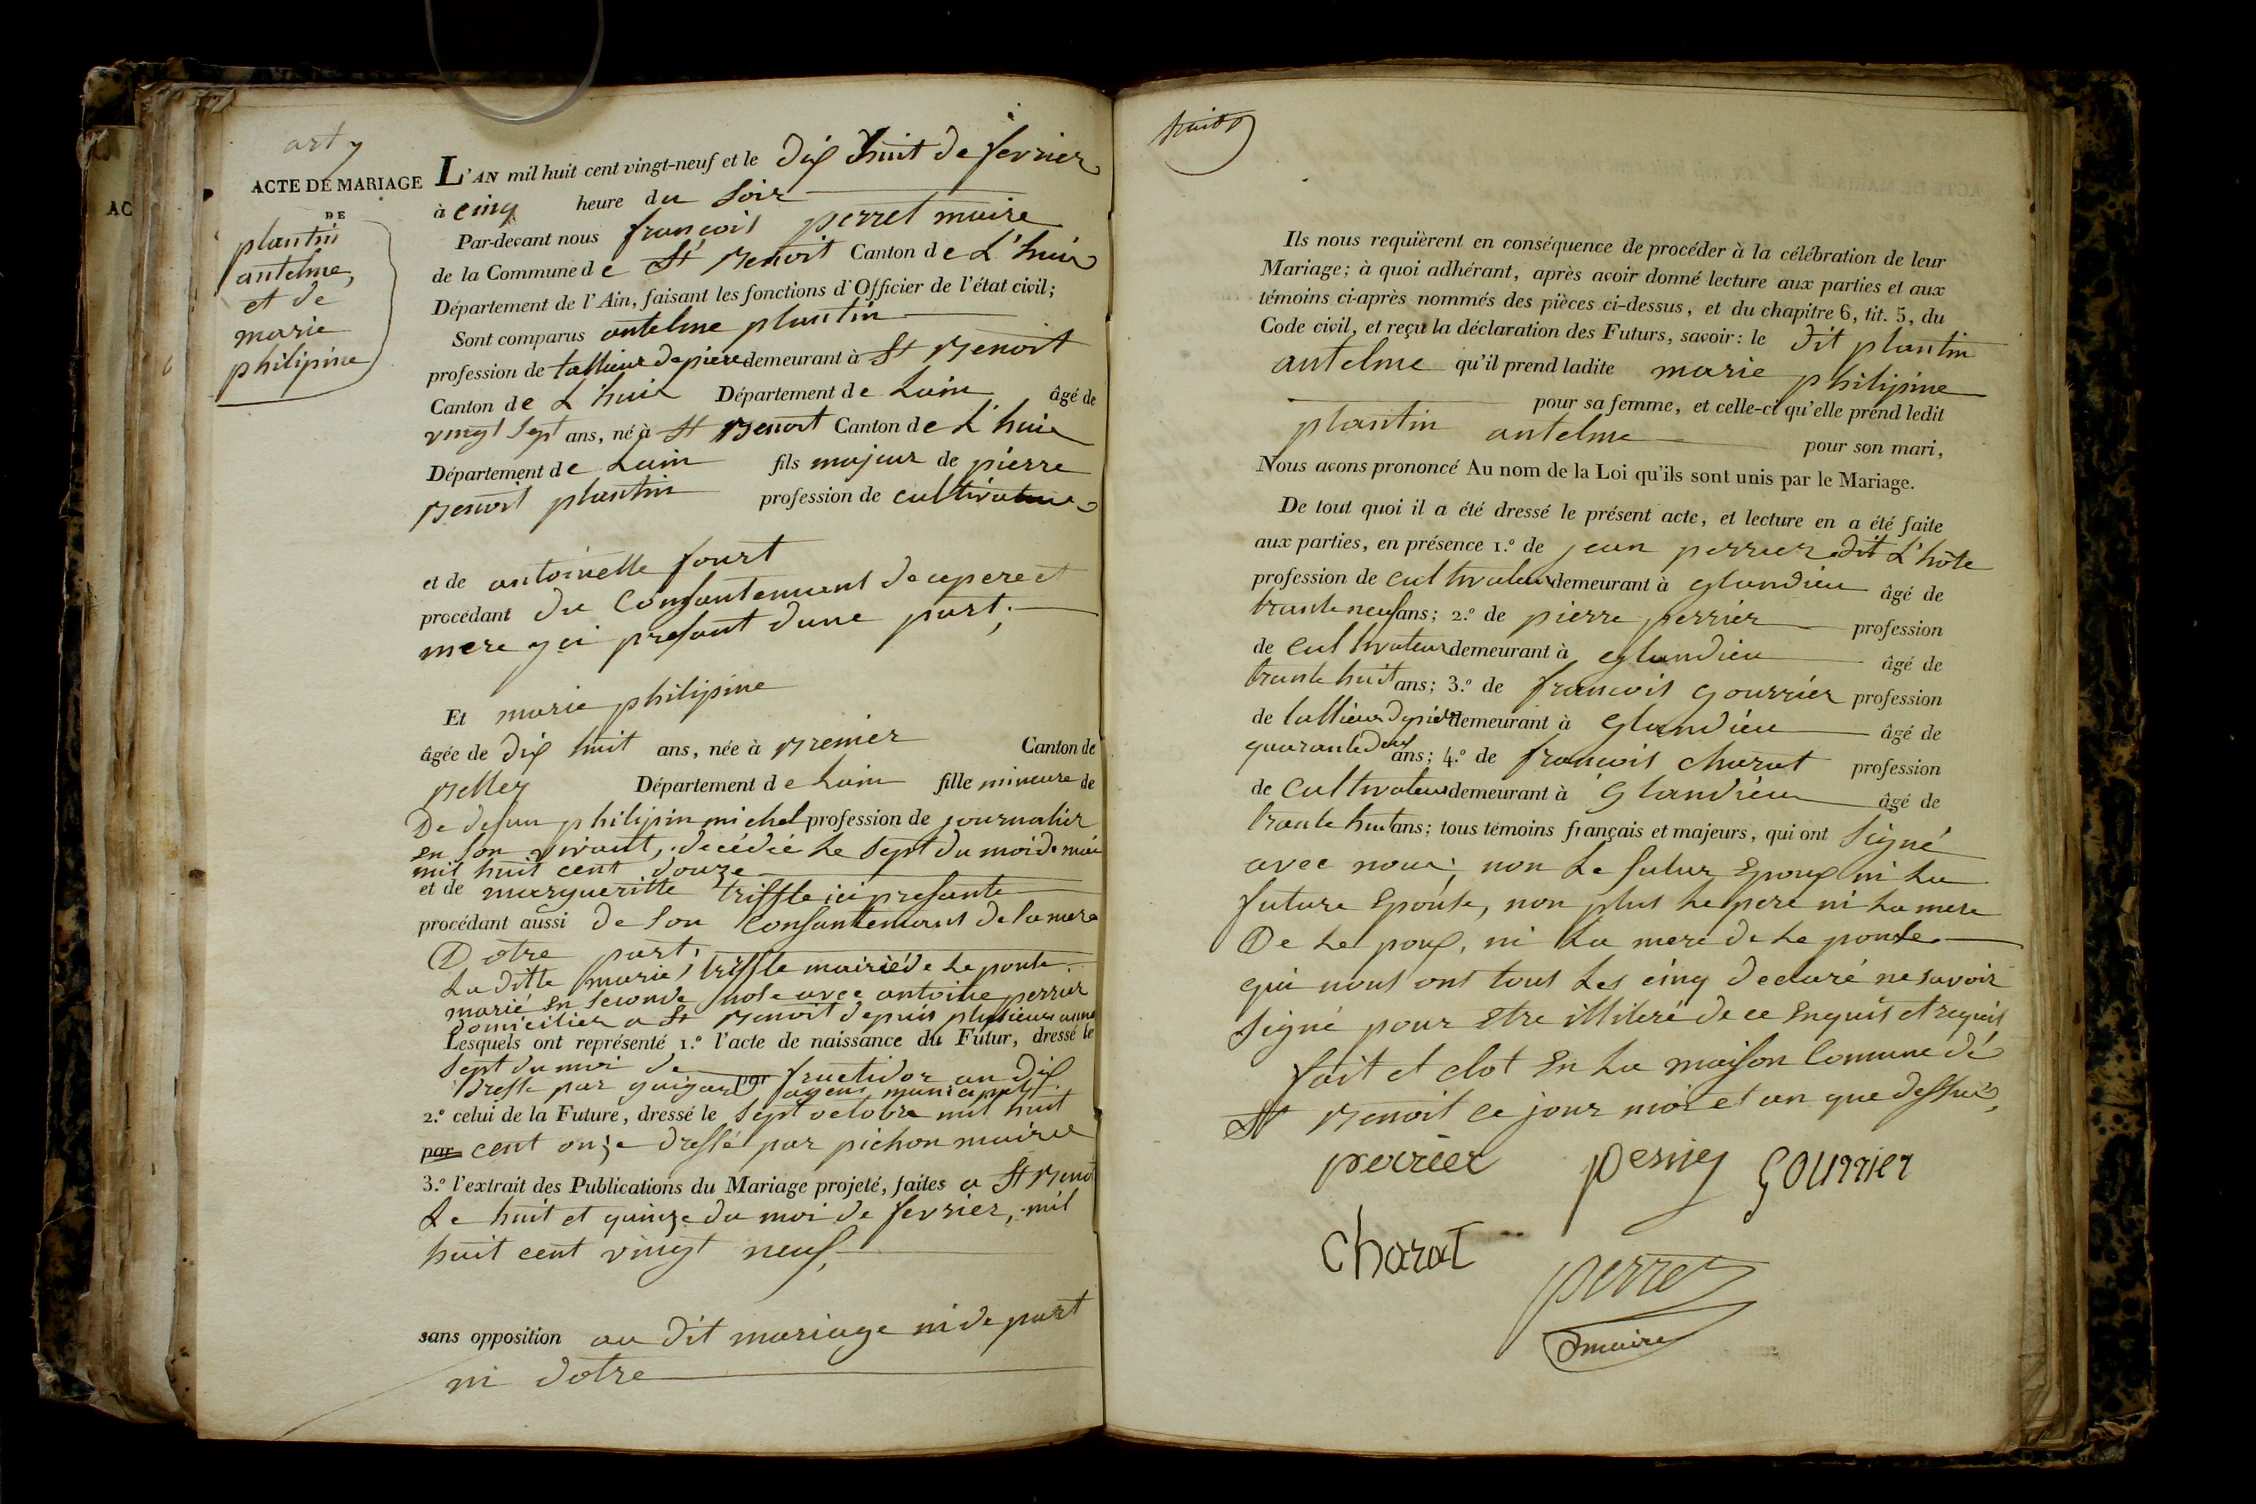 art 7
ACTE DE MARIAGE
DE
plantin
antelme,
et de
marie
philipine
L'AN mil huit cent vingt-neuf et le dix huit de fevrier
à cinq heure du soir
Par-devant nous françois perret maire
de la Commune de St Benoit Canton de L'huis
Département de l'Ain, faisant les fonctions d'Officier de l'état civil;
Sont comparus antelme plantin
profession de tallieur de piere demeurant à St Benoit
Canton de L'huis Département de Lain âgé de
vingt sept ans, né à St Benoit Canton de L'huis
Département de Lain fils majeur de pierre
Benoit plantin profession de cultivateur
et de antoinette fourt
procédant du Consantement de ce pere et
mere yci presant dune part;
Et marie philipine
âgée de dix huit ans, née à Bremier Canton de
Belley Département de Lain fille mineure de
De defun philipin michel profession de journalier
en son vivant, décédé le sept du moi de mai
mil huit cent douze
et de margueritte triffle ici presante
procédant aussi de son Consantemant de la mere
D'otre part;
La ditte marie triffle mairie de le poule
marié en seconde nose avec antoine perrier
domicilier a St Benoit depuis plusieur anné
Lesquels ont représenté 1.º l'acte de naissance du Futur, dressé le
sept du moi de fructidor an dix
dressé par guigard agent municipal
2.º celui de la Future, dressé le sept octobre mil huit
par cent onze dressé par pichon maire
3.º l'extrait des Publications du Mariage projeté, faites a St Benoit
Le huit et quinze du moi de fevrier, mil
huit cent vingt neuf,
sans opposition au dit mariage ni de part
ni dotre
huit
Ils nous requièrent en conséquence de procéder à la célébration de leur
Mariage; à quoi adhérant, après avoir donné lecture aux parties et aux
témoins ci-après nommés des pièces ci-dessus, et du chapitre 6, tit. 5, du
Code civil, et reçu la déclaration des Futurs, savoir: le dit plantin
antelme qu'il prend ladite marie philipine
pour sa femme, et celle-ci qu'elle prend ledit
plantin antelme pour son mari,
Nous avons prononcé Au nom de la Loi qu'ils sont unis par le Mariage.
De tout quoi il a été dressé le présent acte, et lecture en a été faite
aux parties, en présence 1.º de jean perrier dit L'hôte
profession de cultivateur demeurant à glandieu âgé de
trante neuf ans; 2.º de pierre perrier profession
de cultivateur demeurant à glandieu âgé de
trante huit ans; 3.º de francois gourrier profession
de tallieur de piere demeurant à Glandieu âgé de
quarante deux ans; 4.º de francois charat profession
de Cultivateur demeurant à Glandieu âgé de
trante huit ans; tous témoins français et majeurs, qui ont signé
avec nous; non le futur Epoux ni la
future Epouse, non plus le pere ni la mere
De Le poux, ni La mere de Le pouse
qui nous ont tous Les cinq declaré ne savoir
signé pour Etre illiteré de ce Enquis et requis
fait et clot En La maison Comune de
St Benoit ce jour moi et an que dessus,
perrier perrier gourrier
charat
perret
maire